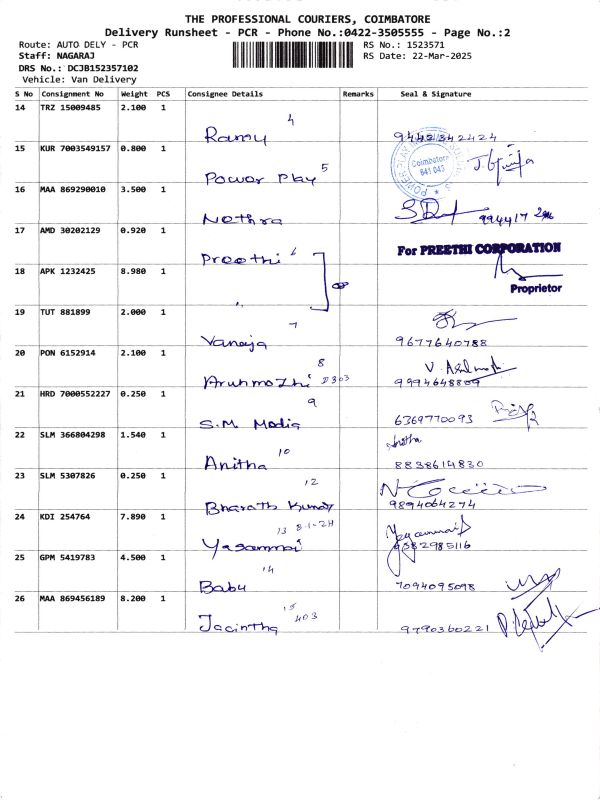 THE PROFESSIONAL COURIERS, COIMBATORE
Delivery Runsheet - PCR - Phone No.:0422-3505555 - Page No.:2
Route: AUTO DELY - PCR RS No.: 1523571
Staff: NAGARAJ RS Date: 22-Mar-2025
DRS No.: DCJB152357102
Vehicle: Van Delivery
S No Consignment No Weight PCS Consignee Details Remarks Seal & Signature
14 TRZ 15009485 2.100 1
4
Ramu 9442342424
15 KUR 7003549157 0.800 1
Coimbatore
641 043
5
Power Play
16 MAA 869290010 3.500 1
Nethra
17 AMD 30202129 0.920 1
Preethi 6
For PREETHI CORPORATION
18 APK 1232425 8.980 1
Proprietor
19 TUT 881899 2.000 1
7
Vaneja 9677640788
20 PON 6152914 2.100 1
8
Arunmozhi D303 9994648809
21 HRD 7000552227 0.250 1
9
S.M. Media 6369770093
22 SLM 366804298 1.540 1
Anitha
10
Anitha 8838614830
23 SLM 5307826 0.250 1
12
Bharath Kumar 9894064274
24 KDI 254764 7.890 1
13 B-1-2H
Yasammai 9382985116
25 GPM 5419783 4.500 1
14
Babu 7094095098
26 MAA 869456189 8.200 1
15
403
Jacintha 9790360221